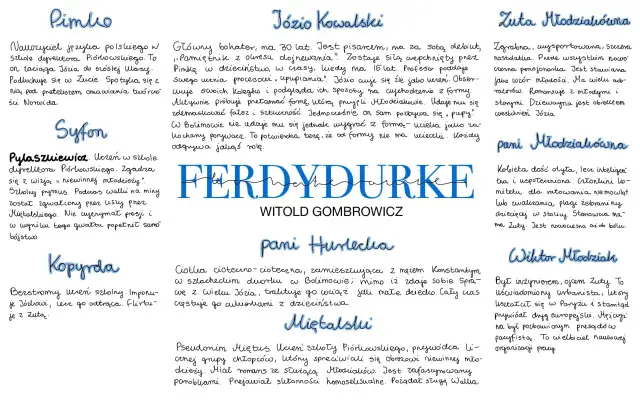 Pimko
Nauczyciel języka polskiego w
szkole dyrektora Piórkowskiego. To
on zaciąga Józia do ósmej klasy.
Podkochuje się w Zucie. Spotyka się z
nią pod pretekstem omawiania twórczo-
ści Norwida
Syfon
Pylaszkiewicz Uczeń w szkole
dyrektora Piórkowskiego. Zgadza
się z wizją "niewinnej młodzieży".
Szkolny prymus. Podczas walki na miny
został zgwałcony przez uszy przez
Miętalskiego. Nie wytrzymał presji i
w wyniku tego gwałtu popełnił samo
bójstwo
Kopyrda
Bezstronny uczeń szkolny. Imponu-
je Józiowi, lecz go odtrąca. Flirtu-
je z Zutą.
Józio Kowalski
Główny bohater, ma 30 lat. Jest pisarzem, ma za sobą debiut,
"Pamiętnik z okresu dojrzewania". Zostaje siłą wepchnięty przez
Pimkę w dzieciństwo, w czasy, kiedy ma 16 lat. Profesor poddaje
swego ucznia procesowi "upupiania". Józio czuje się źle jako uczeń. Obser-
wuje swoich kolegów i podgląda ich sposoby na wychodzenie z formy.
Aktywnie próbuje przełamać formę, którą przyjęli Młodziakowie. Udaje mu się
zdemaskować fałsz i sztuczność. Jednocześnie on sam pozbywa się "pupy".
W Bolimowie nie udaje mu się jednak wygrać z formą - ucieka jako za-
kochany porywacz. To potwierdza tezę, że od formy nie ma ucieczki. Każdy
odgrywa jakąś rolę.
FERDYDURKE
WITOLD GOMBROWICZ
pani Hurlecka
Ciotka ciotczno-cioteczna, zamieszkująca z mężem Konstantym
w szlacheckim dworku w Bolimowie; mimo iż zdaje sobie spra-
wę z wieku Józia, traktuje go wciąż jak małe dziecko. Cały czas
częstuje go cukierkami z dzieciństwa.
Miętalski
Pseudonim Miętus. Uczeń szkoły Piórkowskiego, przywódca li-
cznej grupy chłopców, którzy sprzeciwiali się obrazowi niewinnej mło-
dzieży. Miał romans ze służącą Młodziaków. Jest zafascynowany
parobkami. Przejawiał skłonności homoseksualne. Pożądał sługę Walka.
Zuta Młodziakówna
Zgrabna, wysportowana, szczera
nastolatka. Przede wszystkim nowo
czesna pensjonarka. Jest stawiana
jako wzór młodości. Ma wielu ado-
ratorów. Romansuje z młodymi i
starymi. Dziewczyna jest obiektem
westchnień Józia
pani Młodziakówna
Kobieta dość otyła, lecz inteligen
tna i uspołeczniona. Członkini ko-
mitetu dla ratowania niemowląt
lub zwalczania plagi żebraniny
dziecięcej w stolicy. Stanowcza na-
Wiktor Młodziak
Był inżynierem, ojcem Zuty. To
uświadomiony urbanista, który
kształcił się w Paryżu i stamtąd
przywiózł dryg europejski. Mężczyzna
był pozbawionym przesądów
pacyfistą. To wielbiciel naukowej
organizacji pracy.